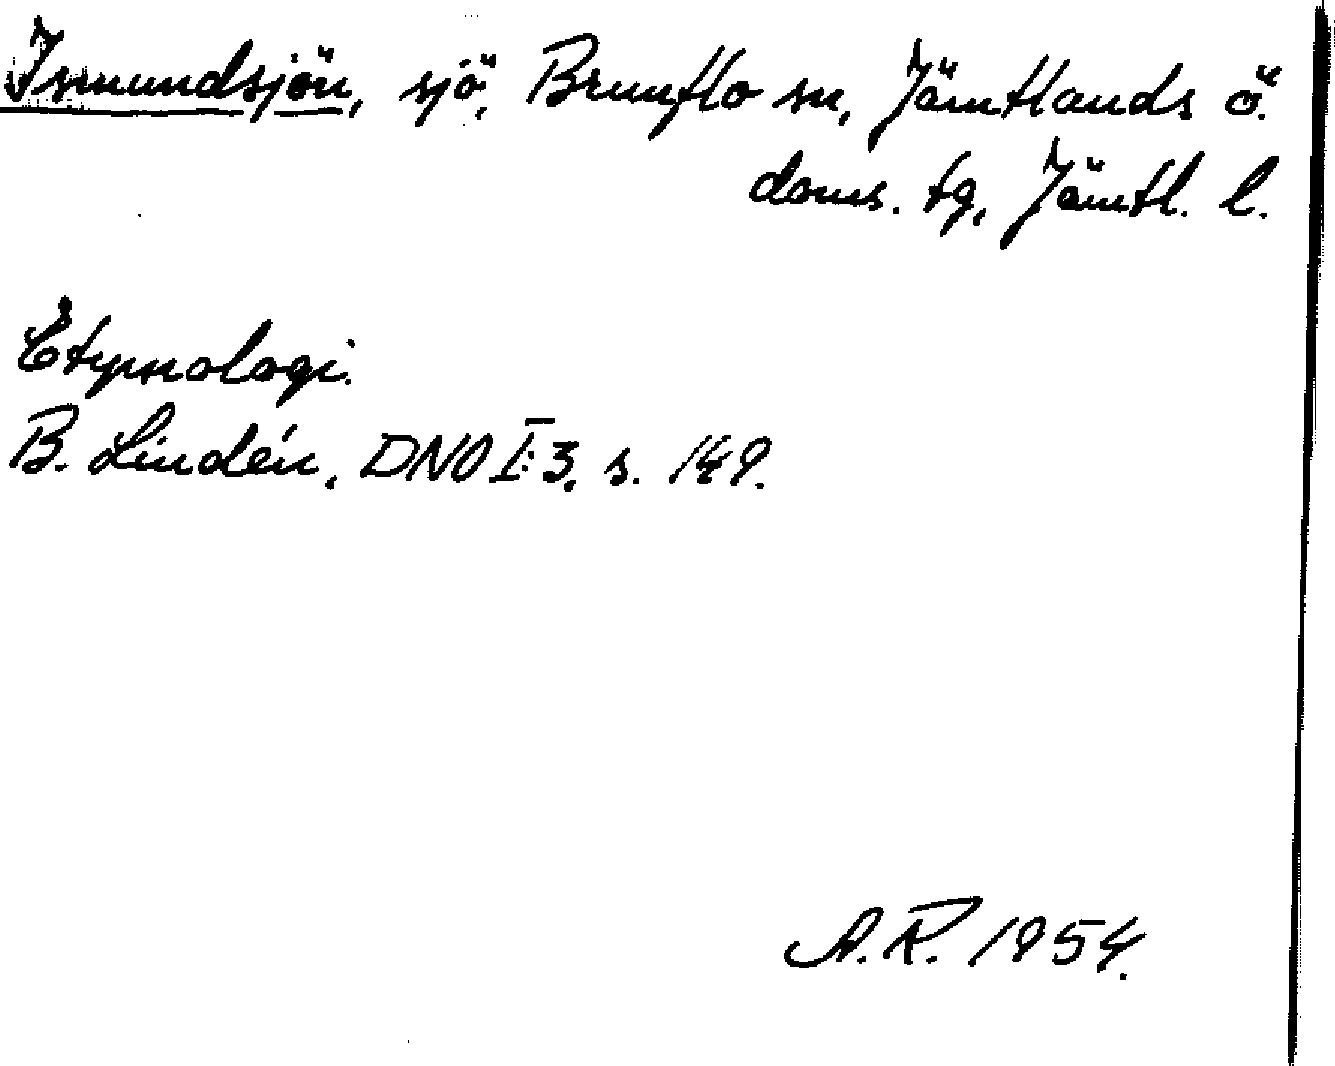 Ismundsjön, sjö, Brunflo sn, Jämtlands ö.
doms. tg, Jämtl. l.
Etymologi.
B. Lindén, DNO I:3, s. 149.
A.R. 1954.